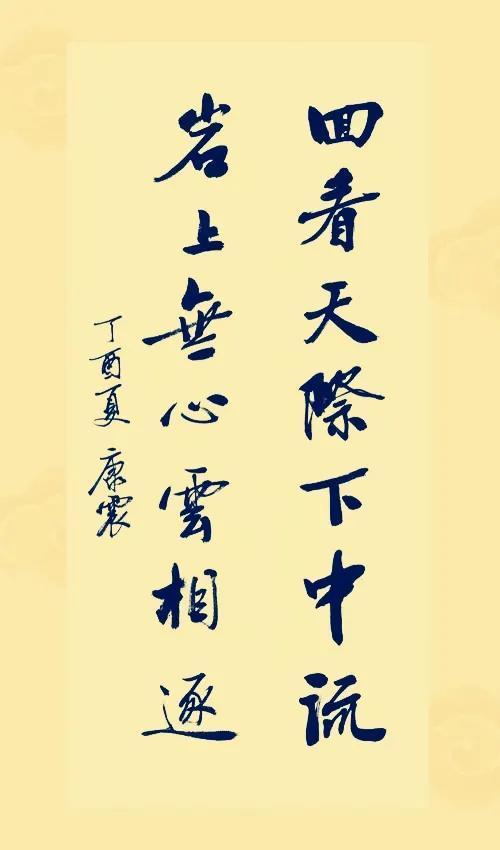 回看天際下中流
岩上無心雲相逐
丁酉夏 康震